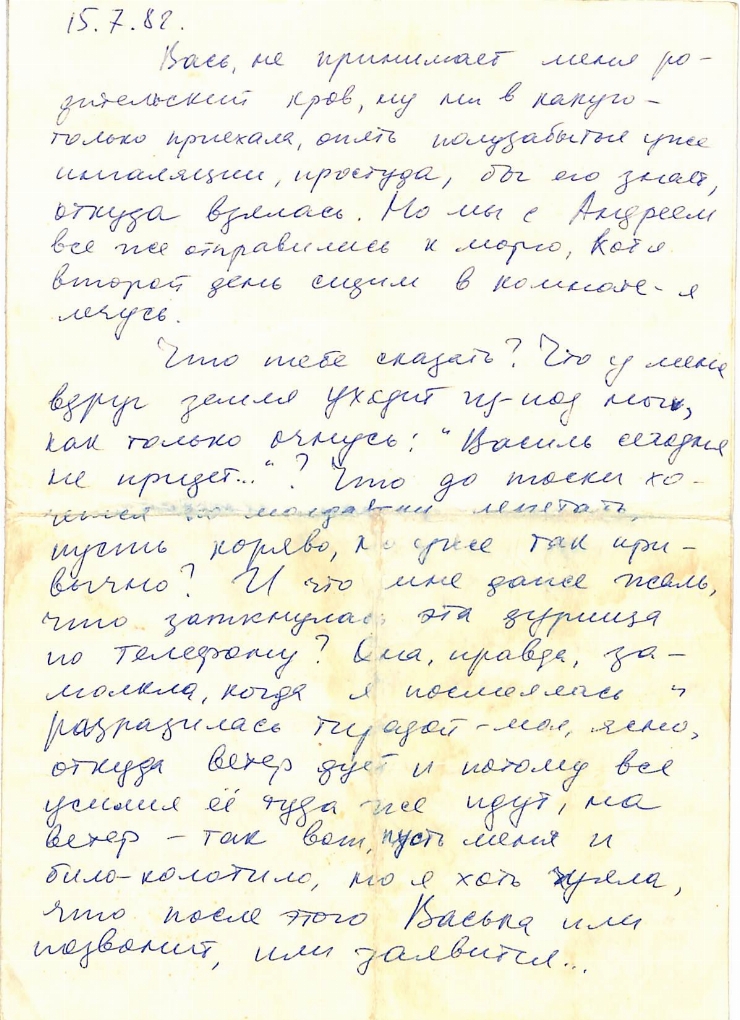 15.7.82.
Вась, не принимает меня ро-
дительский кров, ну ни в какую -
только приехала, опять полузабытые уже
ингаляции, простуда, бог его знает,
откуда взялась. Но мы с Андреем
все же отправились к морю, хотя
второй день сидим в комнате - я
лечусь.
Что тебе сказать? Что у меня
вдруг земля уходит из-под ног,
как только очнусь: "Василь сегодня
не придет..."? Что до тоски хо-
чется по-молдавски лепетать,
пусть коряво, но уже так при-
вычно? И что мне даже жаль,
что заткнулась эта дурища
по телефону? Она, правда, за-
молкла, когда я посмеялась и
разразилась тирадой - мол, ясно,
откуда ветер дует и потому все
усилия её туда же идут, на
ветер - так вот, пусть меня и
било-колотило, но я хоть чуяла,
что после этого Васька или
позвонит, или заявится...